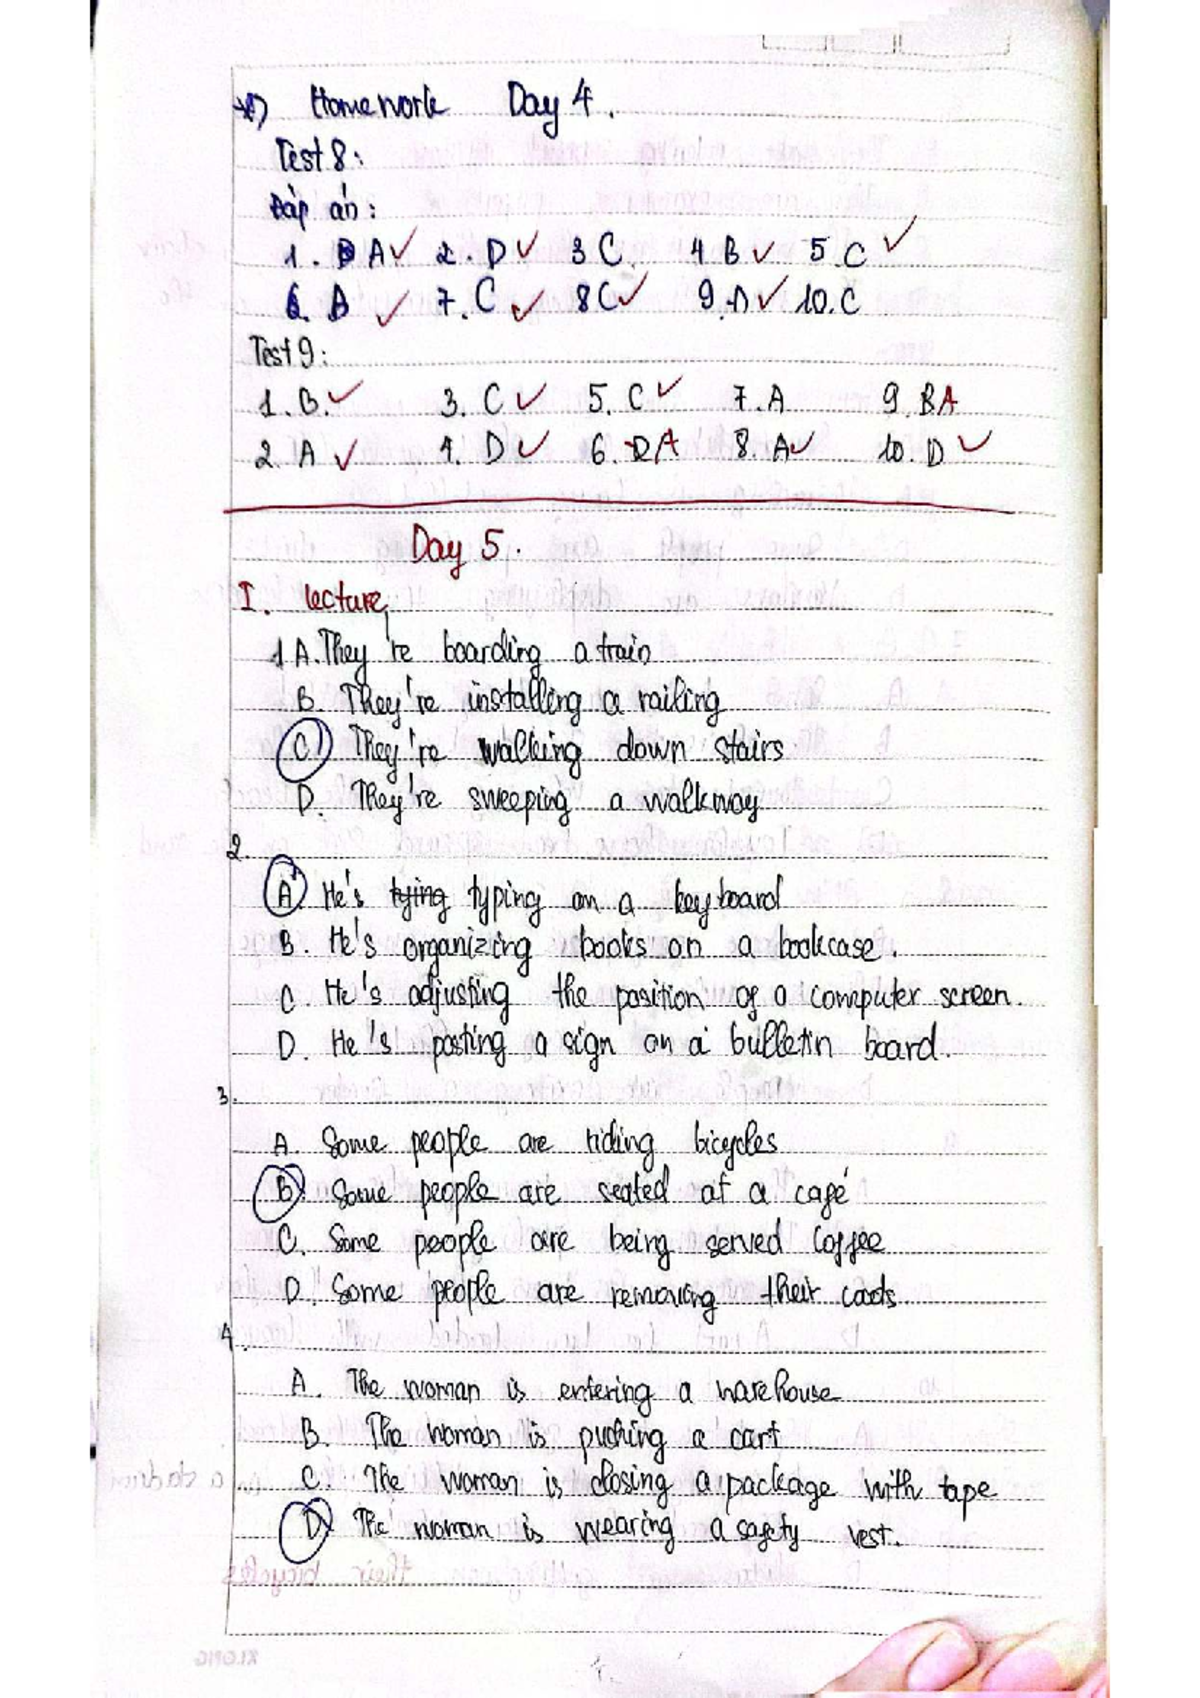 Homework Day 4.
Test 8:
Đáp án:
1. A✓ 2. D✓ 3 C. 4 B ✓ 5. C ✓
6. A ✓ 7. C ✓ 8 C✓ 9. A✓ 10. C
Test 9:
1. B.✓ 3. C ✓ 5. C ✓ 7. A 9. B A
2. A ✓ 4. D ✓ 6. A 8. A✓ 10. D ✓
Day 5.
I. lecture
1 A. They're boarding a train
B. They're installing a railing
C They're walking down stairs
D. They're sweeping a walkway
2.
A He's tying typing on a keyboard
B. He's organizing books on a bookcase.
C. He's adjusting the position of a computer screen.
D. He's posting a sign on a bulletin board.
3.
A. Some people are riding bicycles
B Some people are seated at a café
C. Some people are being served coffee
D. Some people are removing their coats
4.
A. The woman is entering a warehouse
B. The woman is pushing a cart
C. The woman is closing a package with tape
D The woman is wearing a safety vest.